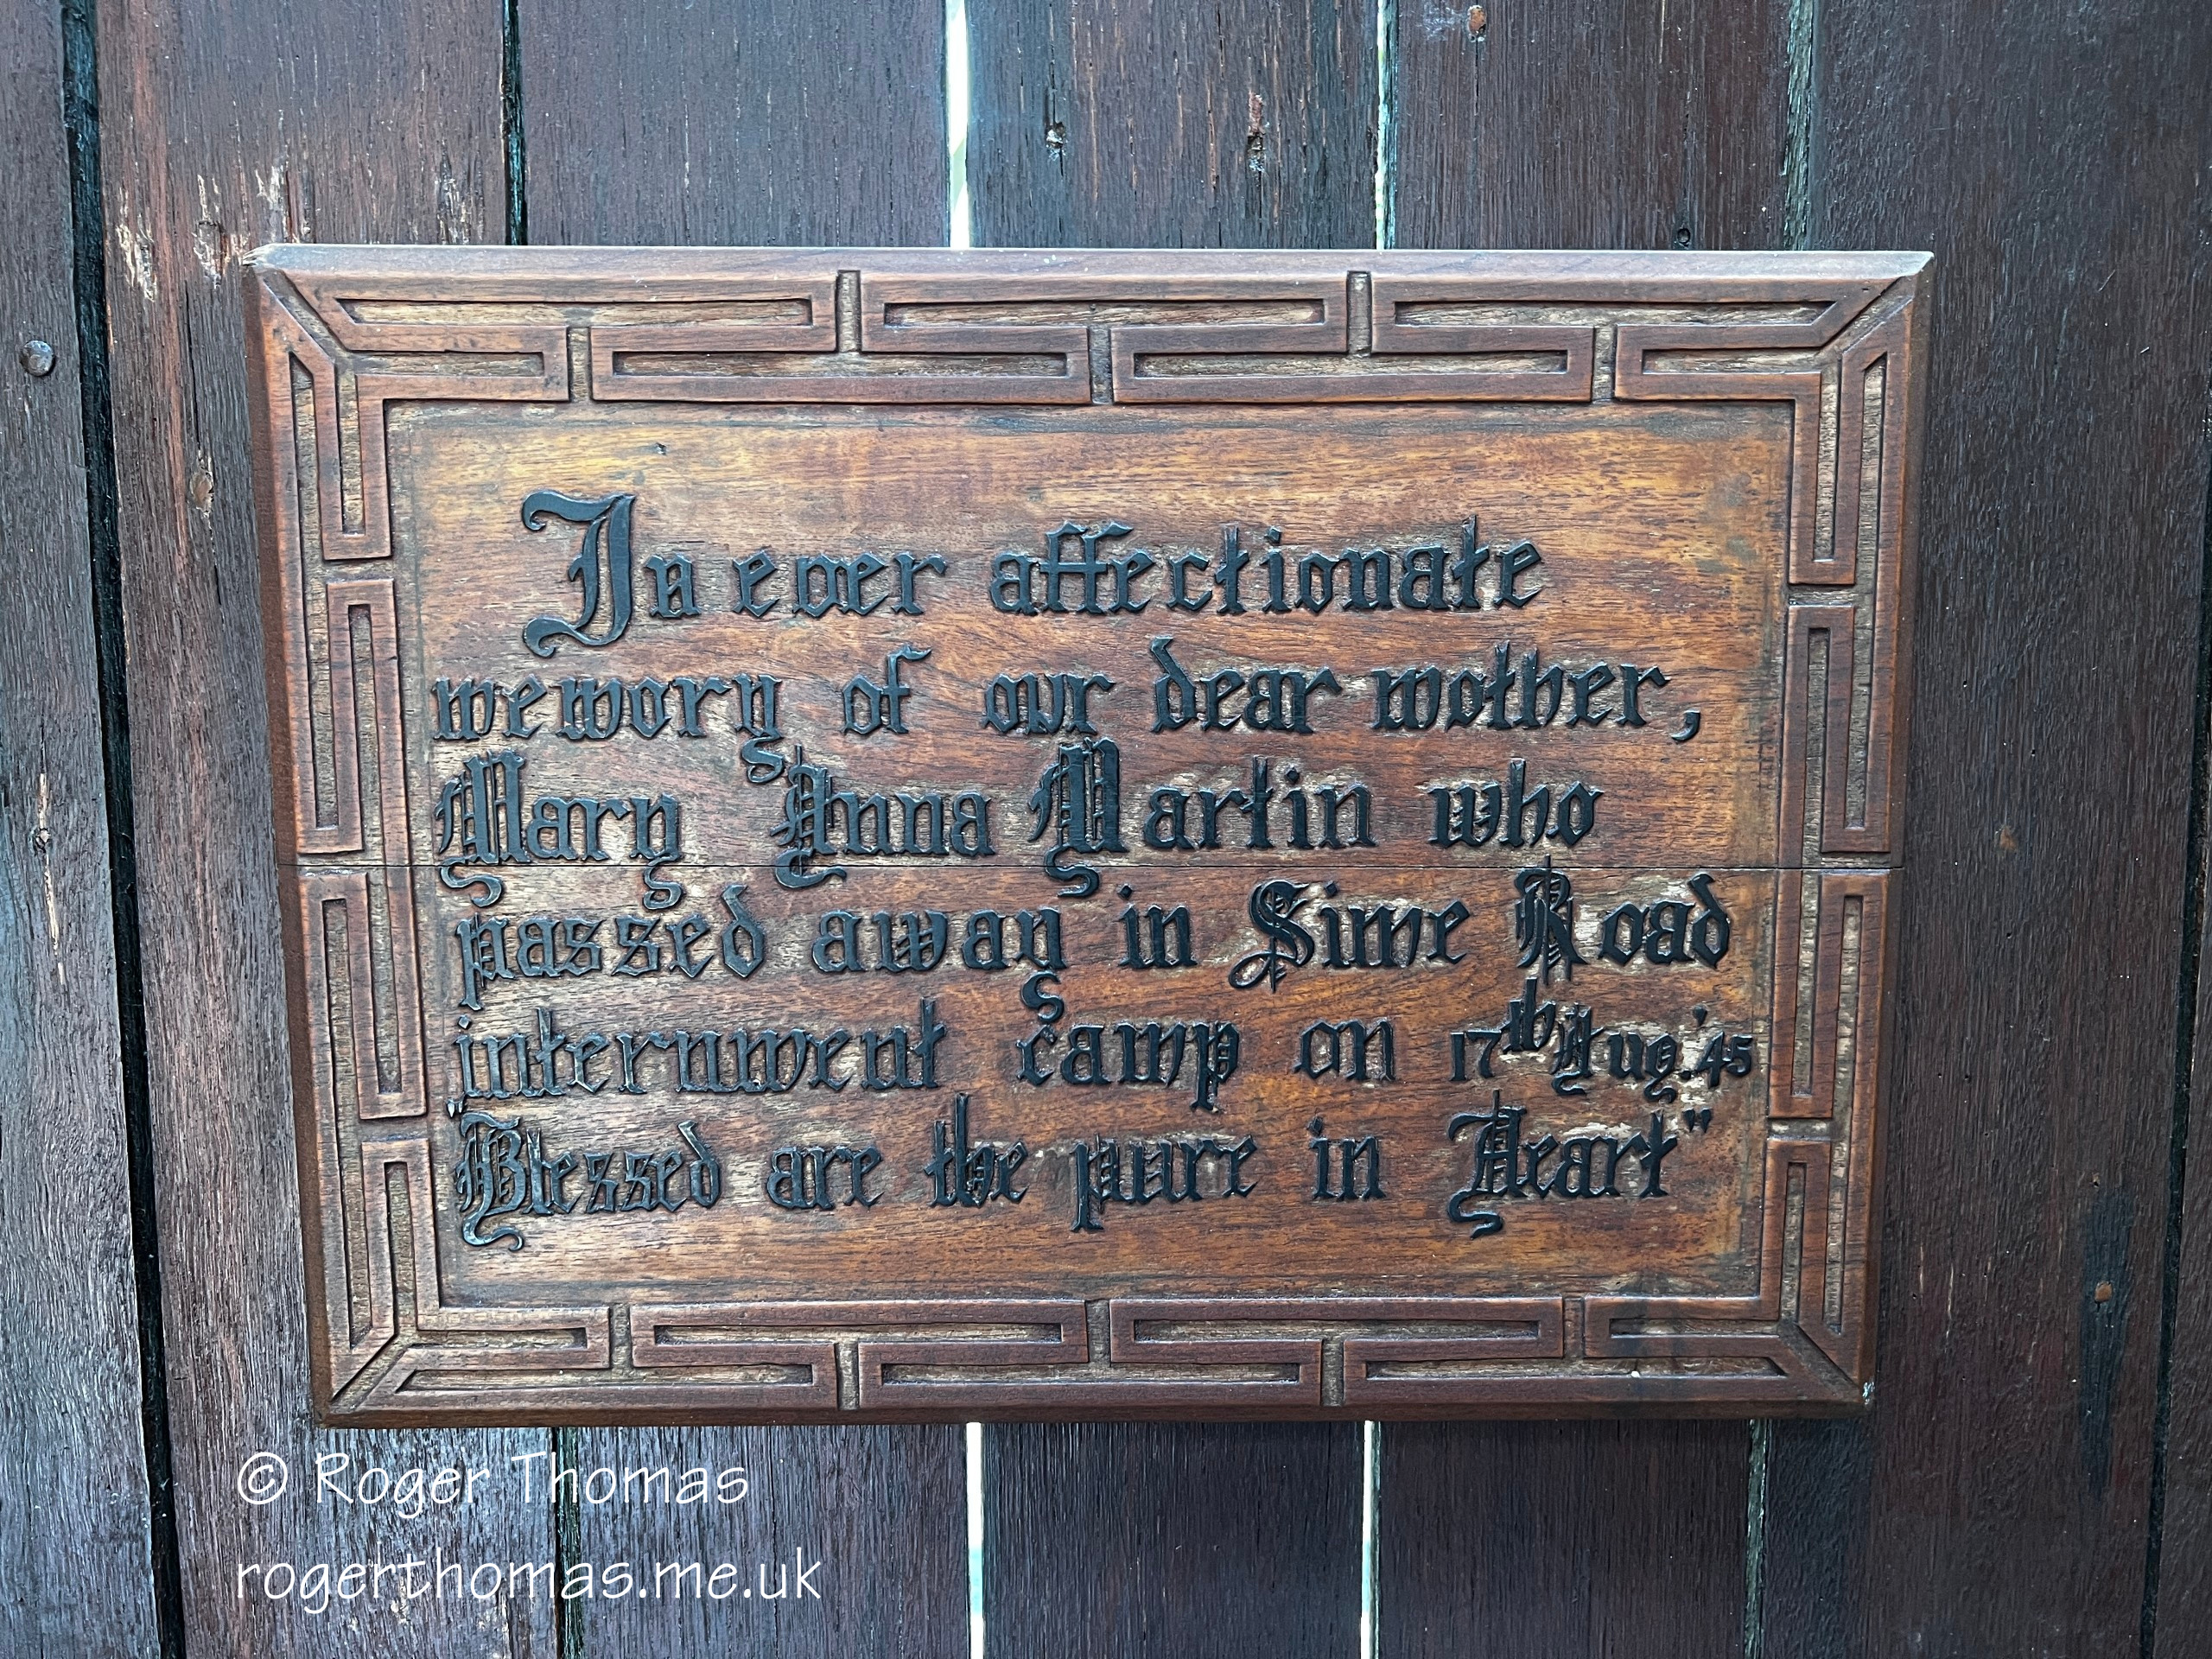 In ever affectionate
memory of our dear mother,
Mary Anna Martin who
passed away in Sime Road
internment camp on 17th Aug. '45
"Blessed are the pure in Heart"
© Roger Thomas
rogerthomas.me.uk